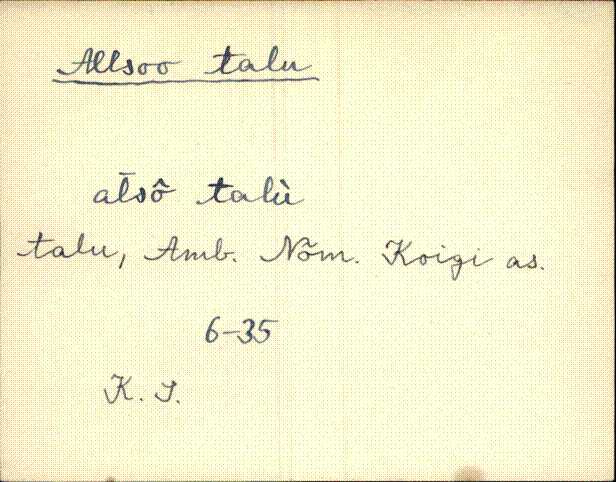 Allsoo talu
al̄sô talù
talu, Amb. Nõm. Koigi as.
6-35
K. S.